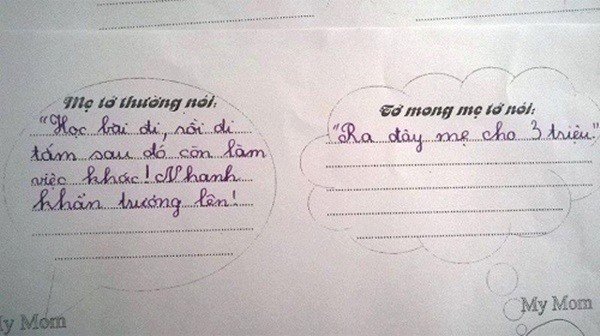 Mẹ tớ thường nói:
"Học bài đi, rồi đi
tắm sau đó còn làm
việc khác! Nhanh
khẩn trương lên!
My Mom
Tớ mong mẹ tớ nói:
"Ra đây mẹ cho 3 triệu."
My Mom